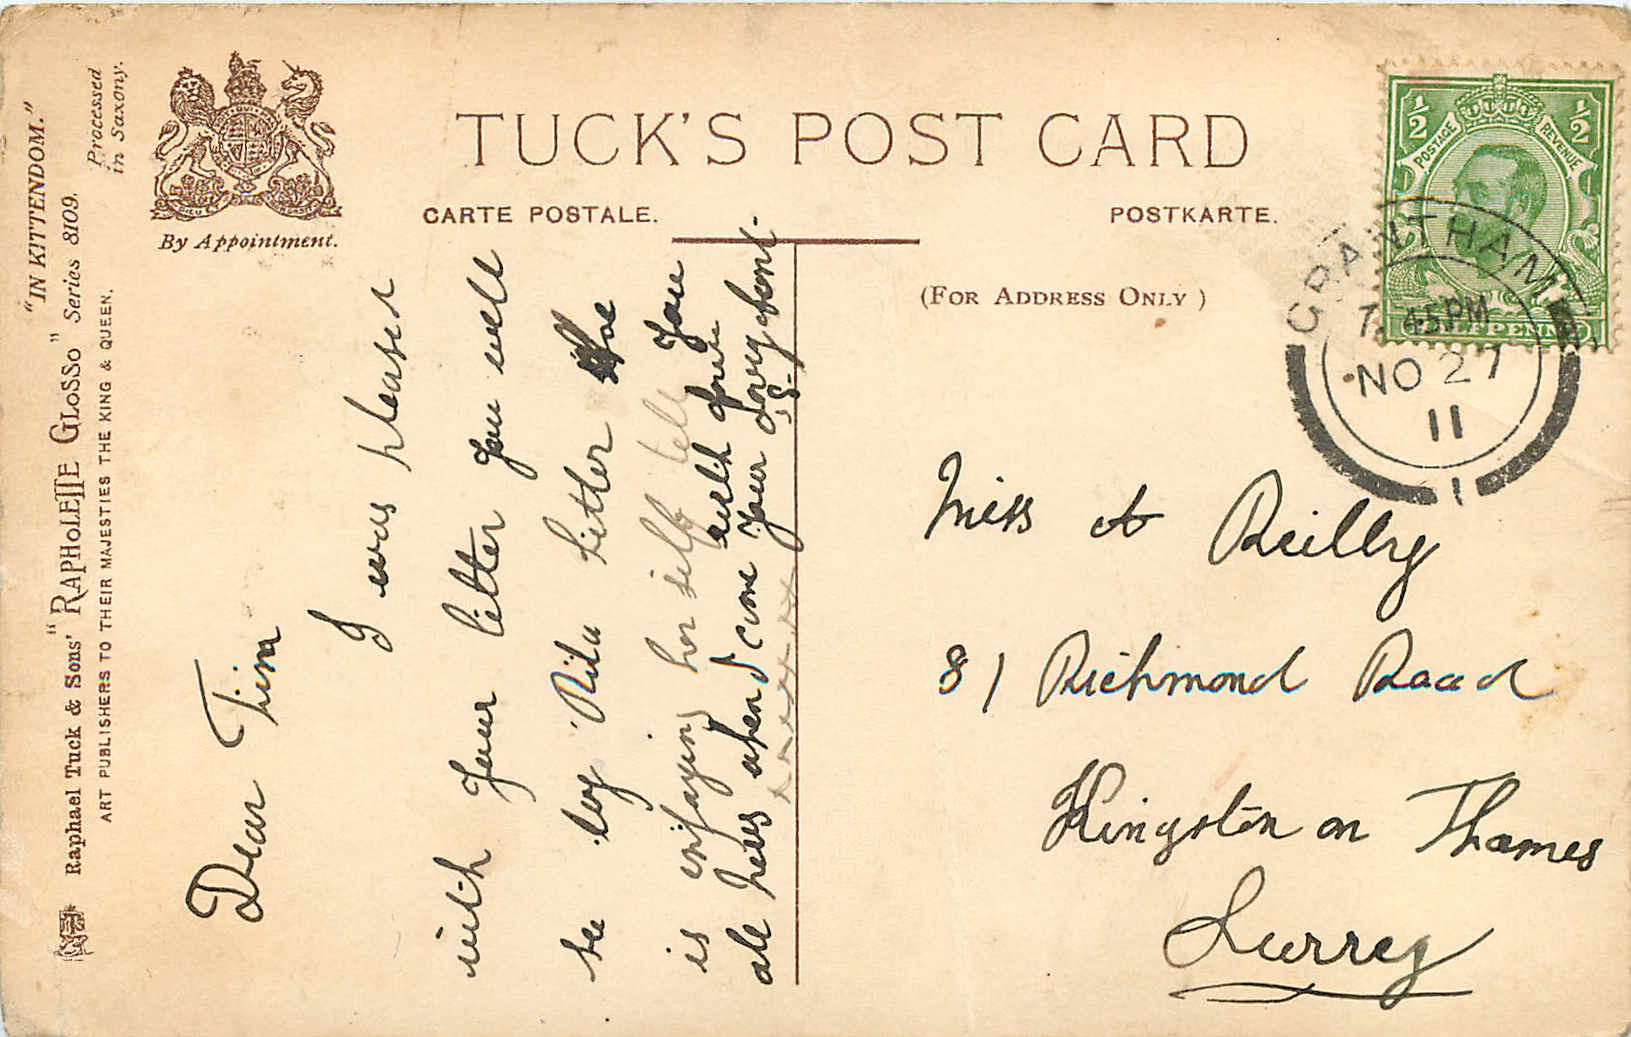 "IN KITTENDOM."
Raphael Tuck & Sons' "RAPHOLETTE GLOSSO" Series 8109.
ART PUBLISHERS TO THEIR MAJESTIES THE KING & QUEEN.
Processed
in Saxony.
By Appointment.
TUCK'S POST CARD
CARTE POSTALE.
POSTKARTE.
(FOR ADDRESS ONLY)
½ ½
POSTAGE REVENUE
HALFPENNY
GRANTHAM
7.45PM
NO 27
11
1
Dear Tina
I was pleased
with your letter you will
see by Rita letter she
is enjaying her self tell
all news when
come your
Miss A Reilly
81 Richmond Road
Kingston on Thames
Surrey